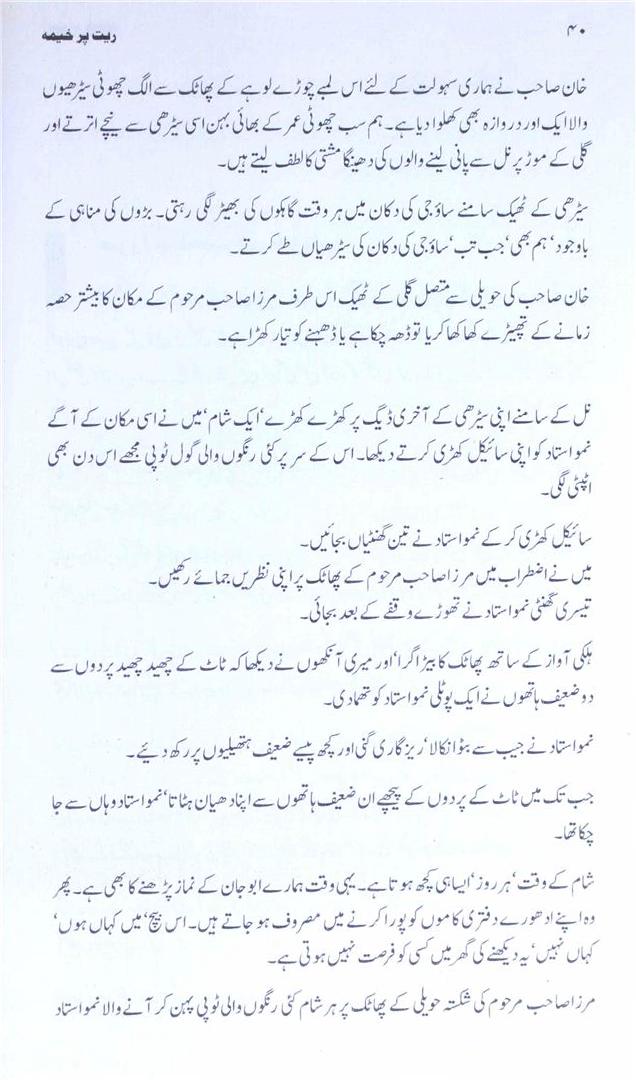 ۴۰
ریت پر خیمہ
خان صاحب نے ہماری سہولت کے لئے اس لمبے چوڑے لوہے کے پھاٹک سے الگ چھوٹی سیڑھیوں
والا ایک اور دروازہ بھی کھلوا دیا ہے۔ ہم سب چھوٹی عمر کے بھائی بہن اسی سیڑھی سے نیچے اترتے اور
گلی کے موڑ پر نل سے پانی لینے والوں کی دھینگا مشتی کا لطف لیتے ہیں۔
سیڑھی کے ٹھیک سامنے ساؤجی کی دکان میں ہر وقت گاہکوں کی بھیڑ لگی رہتی۔ بڑوں کی مناہی کے
باوجود‘ ہم بھی‘ جب تب‘ ساؤجی کی دکان کی سیڑھیاں طے کرتے۔
خان صاحب کی حویلی سے متصل گلی کے ٹھیک اس طرف مرزا صاحب مرحوم کے مکان کا بیشتر حصہ
زمانے کے تھپیڑے کھا کھا کر یا تو ڈھہ چکا ہے یا ڈھہنے کو تیار کھڑا ہے۔
نل کے سامنے اپنی سیڑھی کے آخری ڈیگ پر کھڑے کھڑے‘ ایک شام‘ میں نے اسی مکان کے آگے
نمو استاد کو اپنی سائیکل کھڑی کرتے دیکھا۔ اس کے سر پر کئی رنگوں والی گول ٹوپی مجھے اس دن بھی
اٹپٹی لگی۔
سائیکل کھڑی کر کے نمو استاد نے تین گھنٹیاں بجائیں۔
میں نے اضطراب میں مرزا صاحب مرحوم کے پھاٹک پر اپنی نظریں جمائے رکھیں۔
تیسری گھنٹی نمو استاد نے تھوڑے وقفے کے بعد بجائی۔
ہلکی آواز کے ساتھ پھاٹک کا بیڑا گرا‘ اور میری آنکھوں نے دیکھا کہ ٹاٹ کے چھید چھید پردوں سے
دو ضعیف ہاتھوں نے ایک پوٹلی نمو استاد کو تھما دی۔
نمو استاد نے جیب سے بٹوا نکالا‘ ریزگاری گنی اور کچھ پیسے ضعیف ہتھیلیوں پر رکھ دیئے۔
جب تک میں ٹاٹ کے پردوں کے پیچھے ان ضعیف ہاتھوں سے اپنا دھیان ہٹاتا‘ نمو استاد وہاں سے جا
چکا تھا۔
شام کے وقت‘ ہر روز‘ ایسا ہی کچھ ہوتا ہے۔ یہی وقت ہمارے ابو جان کے نماز پڑھنے کا بھی ہے۔ پھر
وہ اپنے ادھورے دفتری کاموں کو پورا کرنے میں مصروف ہو جاتے ہیں۔ اس بیچ‘ میں کہاں ہوں‘
کہاں نہیں‘ یہ دیکھنے کی گھر میں کسی کو فرصت نہیں ہوتی ہے۔
مرزا صاحب مرحوم کی شکستہ حویلی کے پھاٹک پر ہر شام کئی رنگوں والی ٹوپی پہن کر آنے والا نمو استاد